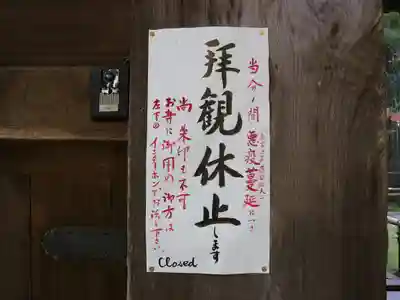 当分ノ間悪疫蔓延につき
拝観休止します
尚朱印も不可
お寺に御用の御方は
左下のインターホンでお話し下さい。
Closed